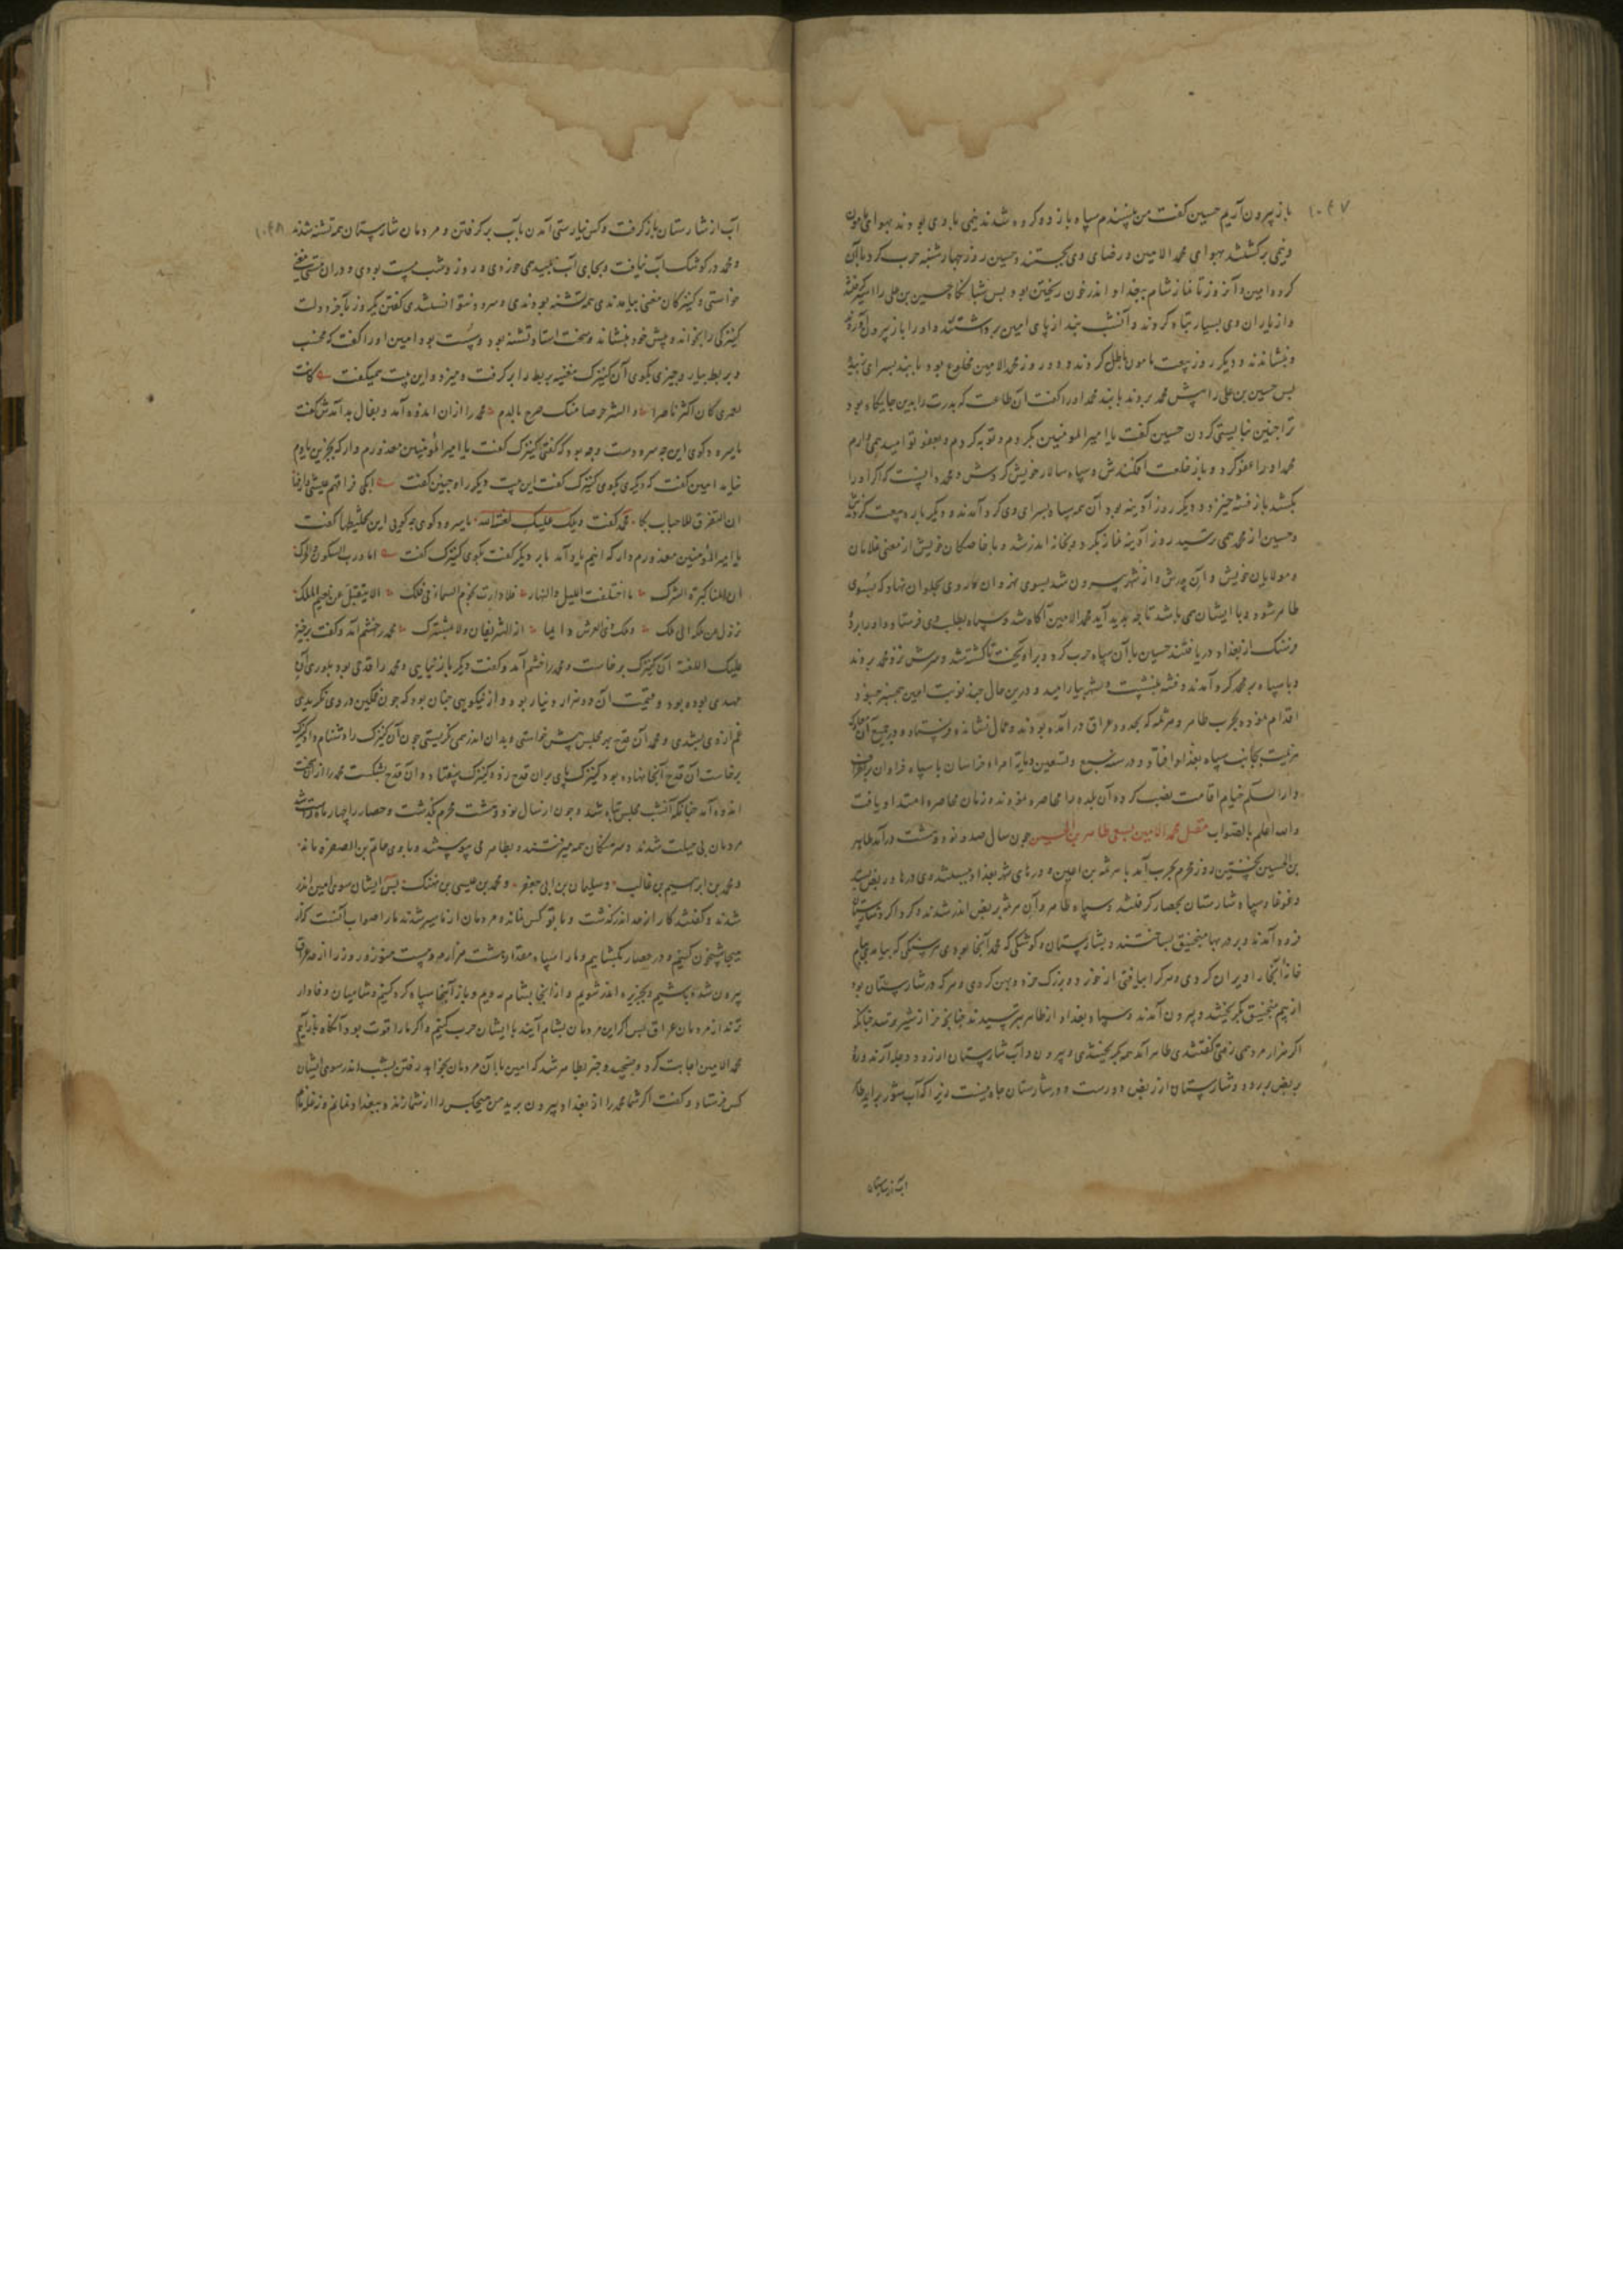 ۱۰۴۷
باز بیرون آریم حسین گفت من نپسندم سپاه باز دو کروه شدند نیمی با وی بودند بهوای مامون
و نیمی برکشتند بهوای محمد الامین و رضای وی جستند و حسین روز چهارشنبه حرب کرد با آن
کروه امین و آنروز تا نماز شام ببغداد اندر خون ریختن بود پس شبانکاه حسین بن علی را اسیر کرفتند
و از یاران وی بسیار تباه کردند و آنشب بند از پای امین برداشتند و او را باز بیرون آوردند
و بنشاندند و دیکر روز بیعت مامون باطل کردند و دو روز محمد الامین مخلوع بود با بند بسرای
پس حسین بن علی را پیش محمد بردند با بند محمد او را گفت آن طاعت که پدرت را بدین جایکاه بود
ترا چنین نبایستی کردن حسین گفت یا امیر المومنین بکردم و توبه کردم و بعفو تو امید همی دارم
محمد او را عفو کرد و باز خلعت افکندش و سپاه سالار خویش کردش و محمد دانست که اکر او را
بکشد باز فتنه خیزد و دیکر روز آدینه بود آن همه سپاه بسرای وی کرد آمدند و دیکر باره بیعت کردند
و حسین از محمد همی ترسید روز آدینه نماز بکرد و بخانه اندر شد و با خاصکان خویش از معنی غلامان
و مولایان خویش و آن پدرش و از شهر بیرون شد بسوی نهروان کار وی بحلوان نهاد که بسوی
طاهر شود و با ایشان همی باشد تا چه پدید آید محمد الامین آکاه شد و سپاه بطلب وی فرستاد و او را بر دو
فرسنک از بغداد دریافتند حسین با آن سپاه حرب کرد و براه تا کشته شد و سرش نزد محمد بردند
و با سپاه بر محمد کرد آمدند و فتنه بنشست و شهر بیارامید و درین حال چند نوبت امین
اقدام نمود بحرب طاهر و هرثمه که بحدود عراق درآمده بودند و عمال نشانده و فرستاده و در جمیع آن معارک
هزیمت بجانب سپاه بغداد افتاد و در سنه سبع و تسعین و مایة امراء خراسان با سپاه فراوان بر اطراف
دار السلم خیام اقامت نصب کرده آن بلده را محاصره نمودند و زمان محاصره امتداد یافت
والله اعلم بالصواب مقتل محمد الامین بسعی طاهر بن الحسین چون سال صد و نود و هشت درآمد طاهر
بن الحسین نخستین روز محرم بحرب آمد با هرثمه بن اعین و درهای شهر بغداد بشکستندی درها و ربض بستند
و غوغا و سپاه شارستان بحصار کرفتند و سپاه طاهر و آن هرثمه بربض اندر شدند و کرداکرد شارستان
فرود آمدند و بر درها منجنیق بساختند و بشارستان و کوشکی که محمد آنجا بودی هر سنکی که بیامدی بام
خانه آنجا را ویران کردی و هر کرا بیافتی از خورد و بزرک خرد و پهن کردی و هر که در شارستان بود
از بیم منجنیق بکریختند و بیرون آمدند و سپاه بغداد از طاهر بترسیدند چنانکه خر از شیر بترسد چنانکه
اکر هزار مرد همی رفتی گفتندی طاهر آمد همه بکریختندی و بیرون و آب شارستان از رود دجله آرند و راه
بربض بر رود و شارستان از ربض دورست و در شارستان چاه نیست زیرا که آب شور برآید طاهر
آب از شارستان
۱۰۴۸
آب از شارستان باز کرفت و کس نیارستی آمدن بآب برکرفتن و مردمان شارستان همه تشنه شدند
و محمد در کوشک آب نیافت و بجای آب نبیذ همی خوردی و روز و شب مست بودی و در آن مستی مغنی
خواستی و کنیزکان مغنی بیامدندی همه تشنه بودندی و سرود نتوانستندی گفتن یک روز بآخر دولت
کنیزکی را بخواند و پیش خود بنشاند و سخت استاد تشنه بود و مست بود امین او را گفت که
و بربط بیار و چیزی بکوی آن کنیزک مغنیه بربط را برکرفت و میزد و این بیت همیگفت کلیب
لعمری کان اکثر ناصرا و ایسر جرما منک ضرج بالدم محمد را از آن اندوه آمد و بفال بد آمدش گفت
یا سرود کوی این چه سرودست و چه بود که گفتی کنیزک گفت یا امیر المؤمنین معذورم دار که بجز این یادم
نیامد امین گفت که دیکری بکوی کنیزک گفت این بیت دیکر را و چنین گفت ابکی فراقهم عینی فارقها
ان التفرق للاحباب بکا محمد گفت ویلک علیک لعنة الله یا سرود کوی چه کویی این غلیظها گفت
یا امیر المؤمنین معذورم دار که اینم یاد آمد بار دیکر گفت بکوی کنیزک گفت اما و رب السکون و الحرک
ان المنایا کثیرة الشرک ما اختلف اللیل و النهار و لا دارت نجوم السماء فی فلک الا لنقل عن نعیم الملک
نزول عن ملک الی ملک و ملک ذی العرش دایما ابدا لیس بفان و لا بمشترک محمد را خشم آمد و گفت برخیز
علیک اللعنة آن کنیزک برخاست و محمد را خشم آمد و گفت دیکر باز نیایی و محمد را قدحی بود بلوری آن
مهدی بوده بود و قیمت آن دو هزار دینار بود و از نیکویی چنان بود که چون غمکین در وی نکریدی
غم از وی بشدی و محمد آن قدح بهر مجلس پیش خواستی و بدان اندر همی نکریستی چون آن کنیزک را دشنام داد کنیزک
برخاست آن قدح آنجا نهاده بود کنیزک پای بر آن قدح زد و کنیزک بیفتاد و آن قدح بشکست محمد را از آن سخت
اندوه آمد چنانکه آنشب مجلس تباه شد و چون از سال نود و هشت محرم بکذشت و حصار را چهار ماه
مردمان بی حیلت شدند و سرهنکان همه میرفتند و بطاهر می پیوستند و با وی حاتم بن الصقر بماند
و محمد بن ابراهیم بن غالب و سلیمان بن ابی جعفر و محمد بن عیسی بن نهنک پس ایشان سوی امین اندر
شدند و گفتند کار از حد اندر کذشت و با تو کس نماند و مردمان از ما سیر شدند ما را صواب آنست که از
اینجا شبیخون کنیم و در حصار بکشاییم و ما را سپاه مقدار هشت هزار مرد هست هنوز در روز را از عراق
بیرون شده باشیم و بجزیره اندر شویم و از اینجا بشام رویم و باز آنجا سپاه کرد کنیم و شامیان وفادار
ترند از مردمان عراق پس اکر این مردمان بشام آیند با ایشان حرب کنیم و اکر ما را قوت بود آنکاه باز آییم
محمد الامین اجابت کرد و بسیجید و خبر بطاهر شد که امین با آن مردمان بخواهد رفتن بشب اندر سوی ایشان
کس فرستاد و گفت اکر شما محمد را از بغداد بیرون برید من هیچکس را از شما زنده ببغداد نمانم و زن و فرزند